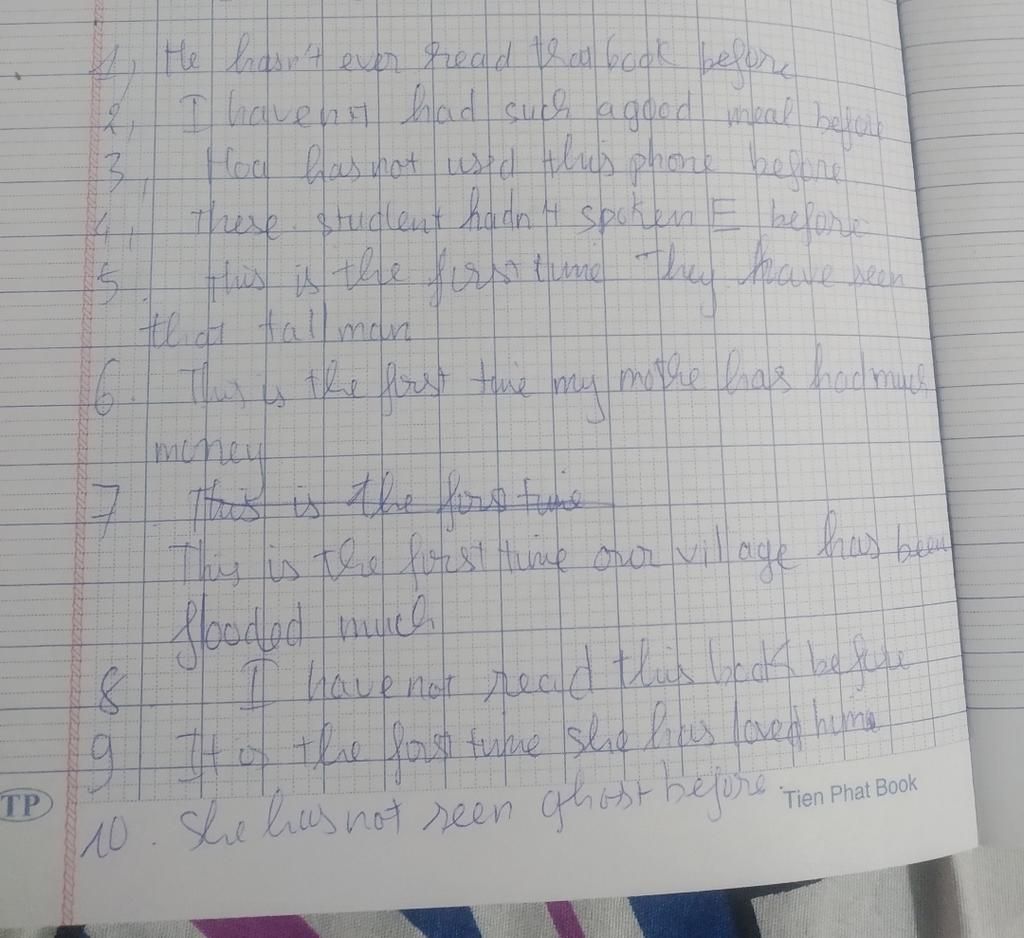 1, He hasn't ever read that book before
2, I have not had such a good meal before
3, Hoa has not used this phone before
4, These student hadn't spoken E before
5. This is the first time They have seen
that tall man
6. This is the first time my mothe has had much
money
7 This is the firs time
This is the first time our village has been
flooded much
8 I have not read this book before
9 It is the first time she has loved him
10. She has not seen ghost before.
TP
Tien Phat Book